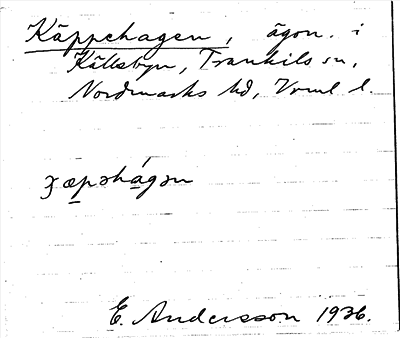 Käppehagen, ägon. i
Källsbyn, Trankils sn,
Nordmarks hd, Vrml l.
ꝫæpəhágən
E. Andersson 1936.